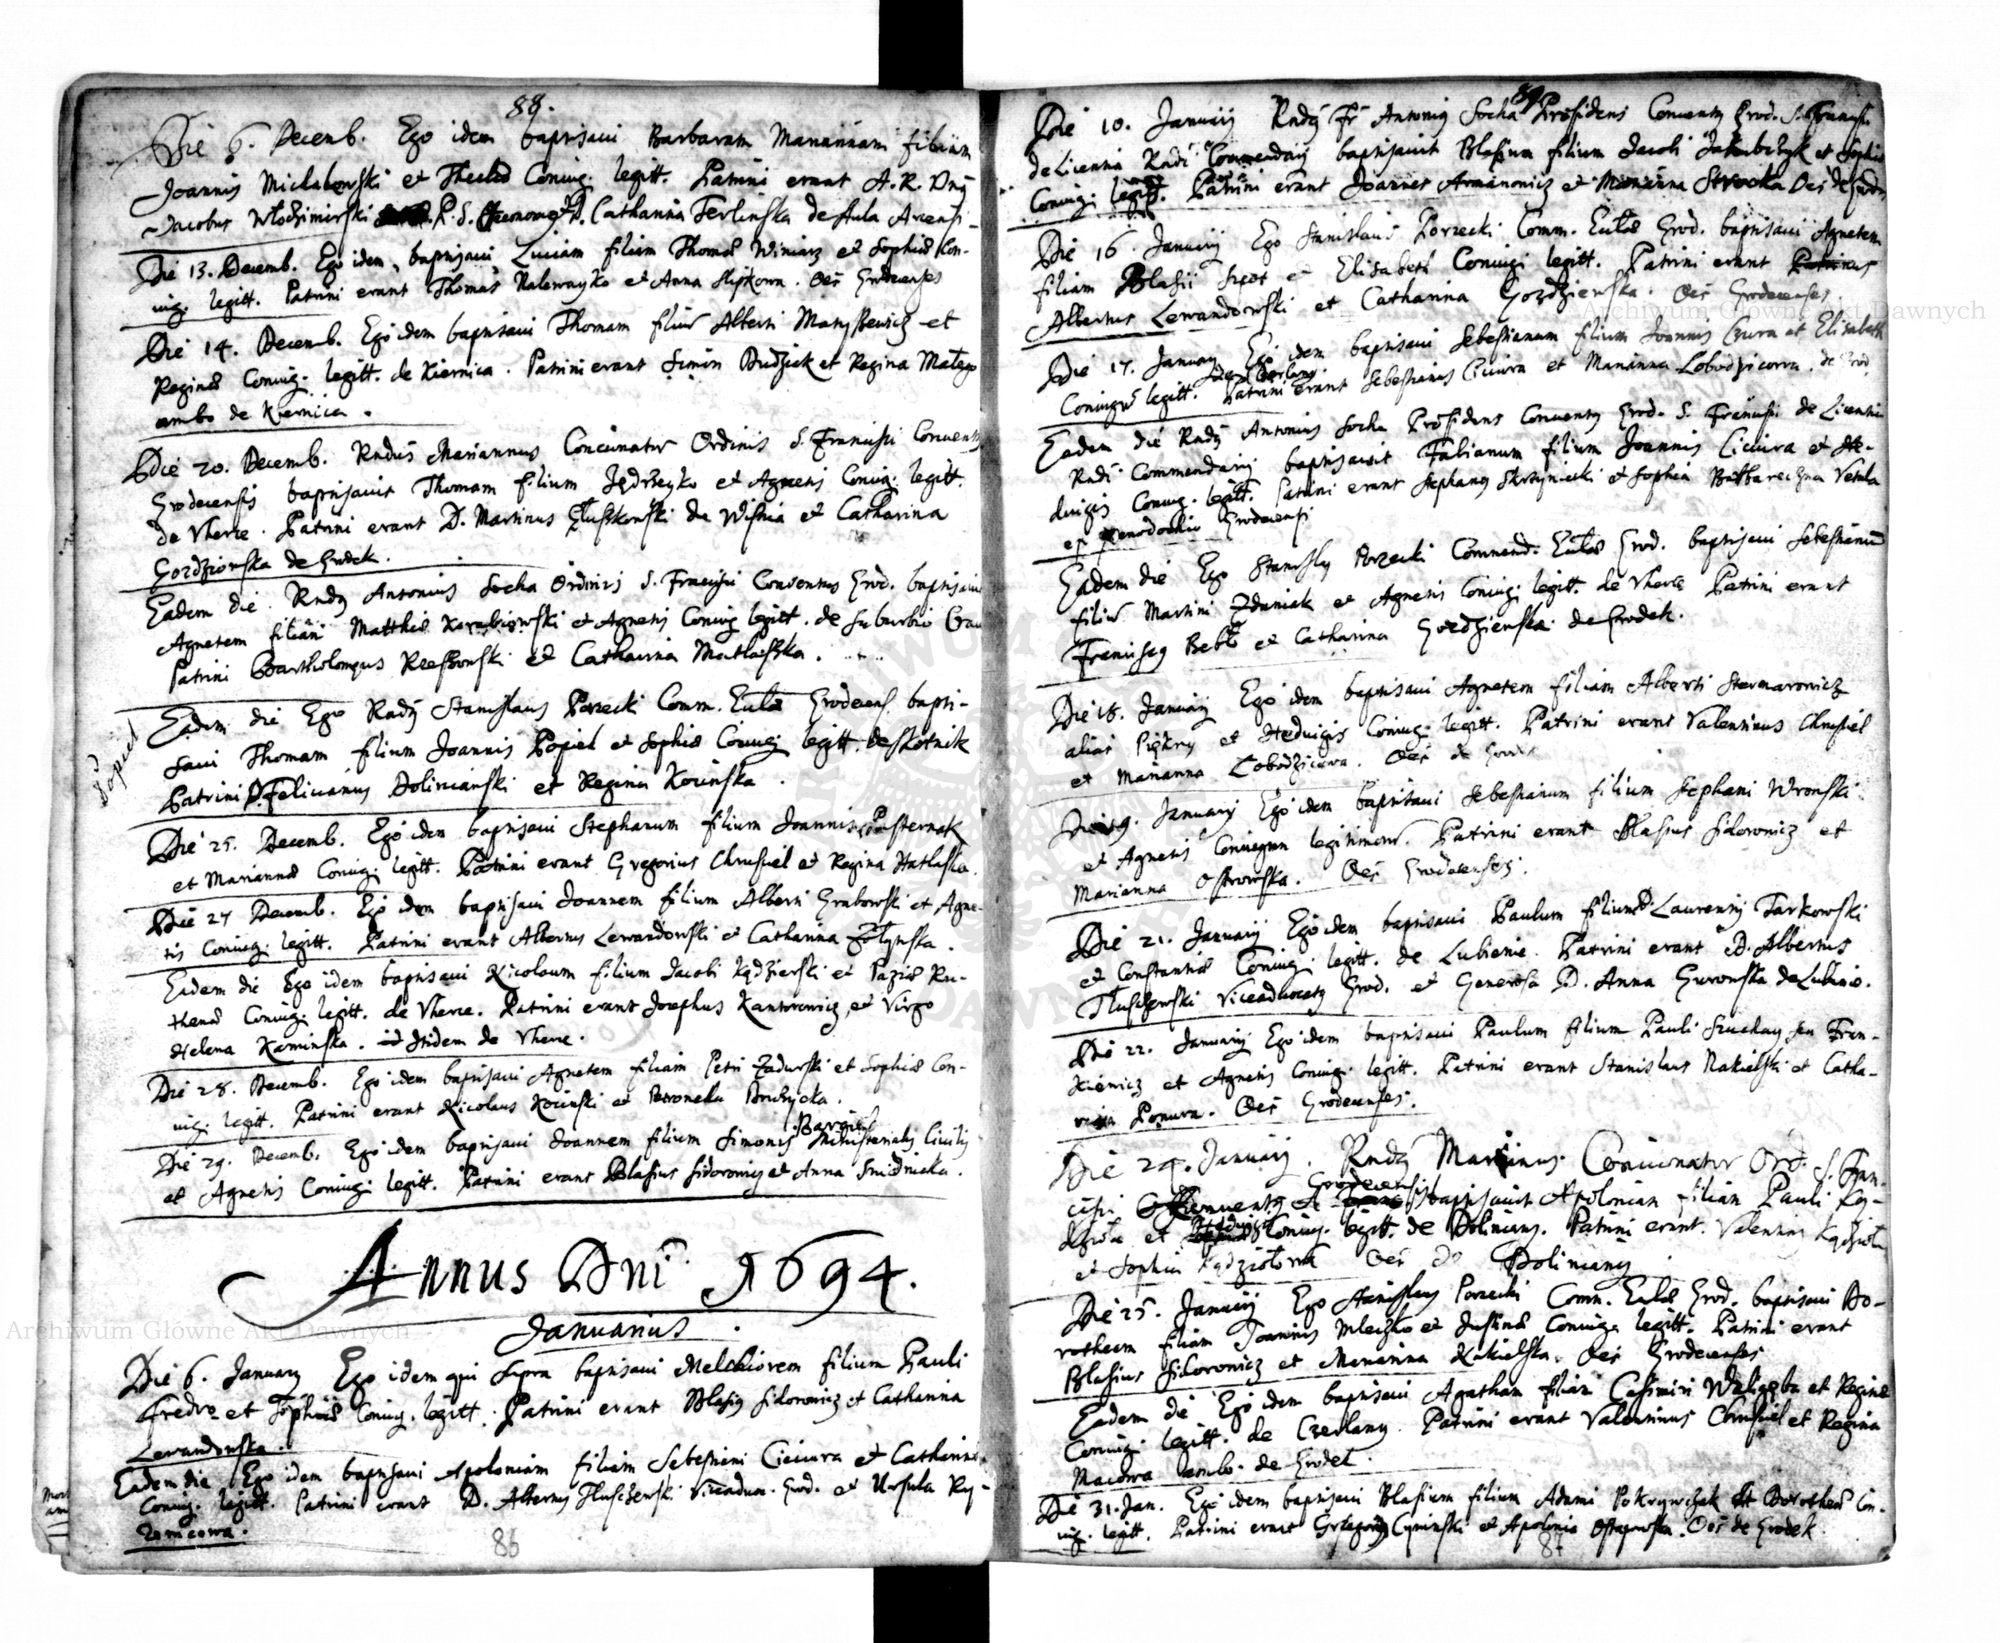 88.
Die 6. Decemb. Ego idem baptisavi Barbaram Mariannam filiam
Joannis Michalowski et Theclæ Coniug. legitt. Patrini erant A. R. Dnus
Jacobus Włodzimirski R. S. D. Catharina Terlinska de Aula
Die 13. Decemb. Ego idem baptisavi Luciam filiam Thomæ Winiarz et Sophiæ Con-
iug. legitt. Patrini erant Thomas Nalewayko et Anna Slipkowa. Oes Grodecenses
Die 14. Decemb. Ego idem baptisavi Thomam filium Alberti Matysewicz et
Reginæ Coniug. legitt. de Kiernica. Patrini erant Simon Budzick et Regina
ambo de Kiernica.
Die 20. Decemb. Rndus Mariannus Concionator Ordinis S. Francisci Conventus
Grodecensis baptisavit Thomam filium Jędrzeyko et Agnetis Coniug. legitt.
de Vherce. Patrini erant D. Martinus Głuszkowski de Wisnia et Catharina
Gozdziowska de Grodek.
Eadem die. Rndus Antonius Socha Ordinis S. Francisci Conventus Grod. baptisavit
Agnetem filiam Matthiæ et Agnetis Coniug legitt. de Suburbio
Patrini Bartholomæus Rzeszowski et Catharina Matłaszka.
Popiel
Eadem die Ego Rndus Stanislaus Porzecki Comm. Ecclæ Grodecens. bapti-
savi Thomam filium Joannis Popiel et Sophiæ Coniug legitt. de Rotnik
Patrini D. Felicianus Doliniański et Regina Kocinska.
Die 25. Decemb. Ego idem baptisavi Stephanum filium Joannis Pasternak
et Mariannæ Coniug. legitt. Patrini erant Gregorius Chrusciel et Regina
Die 27 Decemb. Ego idem baptisavi Joannem filium Alberti Grabowski et Agne-
tis Coniug. legitt. Patrini erant Albertus Lewandowski et Catharina Zołynska.
Eadem die Ego idem baptisavi Nicolaum filium Jacobi Kędzierski et Paziæ Ru-
thenæ Coniug. legitt. de Vherce. Patrini erant Josephus Kantorowicz et Virgo
Helena Kaminska. itidem de Vherce.
Die 28. Decemb. Ego idem baptisavi Agnetem filiam Petri Zadurski et Sophiæ Con-
iug. legitt. Patrini erant Nicolaus Kocinski et Petronela
Die 29. Decemb. Ego idem baptisavi Joannem filium Simonis Ministerialis Civilis
et Agnetis Coniug. legitt. Patrini erant Blasius Sidorowicz et Anna
Annus Dni 1694.
Januarius.
Die 6. January Ego idem qui supra baptisavi Melchiorem filium Pauli
Fredro et Sophiæ Coniug. legitt. Patrini erant Blasius Sidorowicz et Catharina
Lewandowska.
Eadem die Ego idem baptisavi Apoloniam filiam Sebestiani Ciciura et Catharinæ
Coniug. legitt. Patrini erant D. Albertus Tłuszczewski Viceadvo. Grod. et Ursula Ry-
Mor
am
86
89
Die 10. January Rndus Fr Antonius Socha Præsidens Conventus Grod. S. Francisci
de Licentia Rndi Commendarij baptisavit Blasium filium Jacobi Jakubczyk et Sophiæ
Coniug. legitt. Patrini erant Joannes Armanowicz et Marianna Oes de Grodek
Die 16 January Ego Stanislaus Porzecki Comm. Eccłæ Grod. baptisavi Agnetem
filiam Blasii et Elisabeth Coniugi legitt. Patrini erant
Albertus Lewandowski et Catharina Gozdzienska. Oes Grodecenses.
Die 17. January Ego idem baptisavi Sebestianum filium Joannis Czura et Elisabeth
de Czerlany.
Coniugu legitt. Patrini erant Sebestianus Ciciura et Marianna Lobodzicowa. de Grod
Eadem die Rndus Antonius Socha Præsidens Conventus Grod. S. Francisci de Licentia
Rndi Commendarij baptisavit Fabianum filium Joannis Ciciura et He-
dvigis Coniug. legitt. Patrini erant Stephanus Skrzyniecki et Sophia Vetula
ex Xenodochio Grodecensi
Eadem die Ego Stanislaus Porzecki Commend. Eccłæ Grod. baptisavi Sebestianum
filium Martini Zduniak et Agnetis Coniug. legitt. de Vherce Patrini erant
Franciscus et Catharina Gozdzienska de Grodek.
Die 18. January Ego idem baptisavi Agnetem filiam Alberti
alias Piękny et Hedvigis Coniug. legitt. Patrini erant Valentinus Chrusciel
et Marianna Lobodzicowa. Oes de Grodek
Die 19. January Ego idem baptisavi Sebestianum filium Stephani Wronski
et Agnetis Coniugum legitimorum. Patrini erant Blasius Sidorowicz et
Marianna Ostrowska. Oes Grodecenses.
Die 21. January Ego idem baptisavi Paulum filium D. Laurentij Tarkowski
et Constantiæ Coniug. legitt. de Lubienie. Patrini erant D. Albertus
Tłuszczewski Viceadvocatus Grod. et Generosa D. Anna Gurowska de Lubienie.
Die 22. January Ego idem baptisavi Paulum filium Pauli seu Fran-
kiewicz et Agnetis Coniug. legitt. Patrini erant Stanislaus Nakielski et Catha-
rina Ponura. Oes Grodecenses.
Die 24. January. Rndus Martinus Concionator Ord. S. Fran-
cisci Conventus Grodecensis baptisavit Apoloniam filiam Pauli Kę-
dzioła et Hedvigis Coniug. legitt. de Doliniany. Patrini erant. Valentinus Kędzioła
et Sophia Kędziołowa Oes de Doliniany
Die 25. January Ego Stanislaus Porzecki Comm. Eccłæ Grod. baptisavi Do-
rotheam filiam Joannis Mleczko et Justinæ Coniug. legitt. Patrini erant
Blasius Sidorowicz et Marianna Nakielska. Oes Grodecenses
Eadem die Ego idem baptisavi Agatham filiam Casimiri et Reginæ
Coniug. legitt. de Czerlany. Patrini erant Valentinus Chrusciel et Regina
Macowa ambo. de Grodek.
Die 31. Jan. Ego idem baptisavi Blasium filium Adami Pokrywczak et Dorotheæ Con-
iug. legitt. Patrini erant Grzegorz Cyminski et Apolonia Ostapowska. Oes de Grodek.
87
Archiwum Główne Akt Dawnych
Archiwum Główne Akt Dawnych